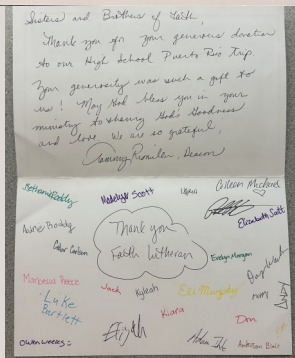 Sisters and Brothers of Faith,
Thank you for your generous donation
to our High School Puerto Rio Trip.
Your generousity was such a gift to
us! May God bless you in your
ministry to sharing God's Goodness
and love. We are so grateful,
Tammy, Deacon
Madelyn Scott
Colleen
Elizabeth Scott
Thank you
Faith Lutheran
Evelyn Morgan
Marbessa Reece
Jack
Kyleah
Eli Murphy
Luke
Bartlett
Kiara
Don
Owen weeks
Elijah
Anderson Blair